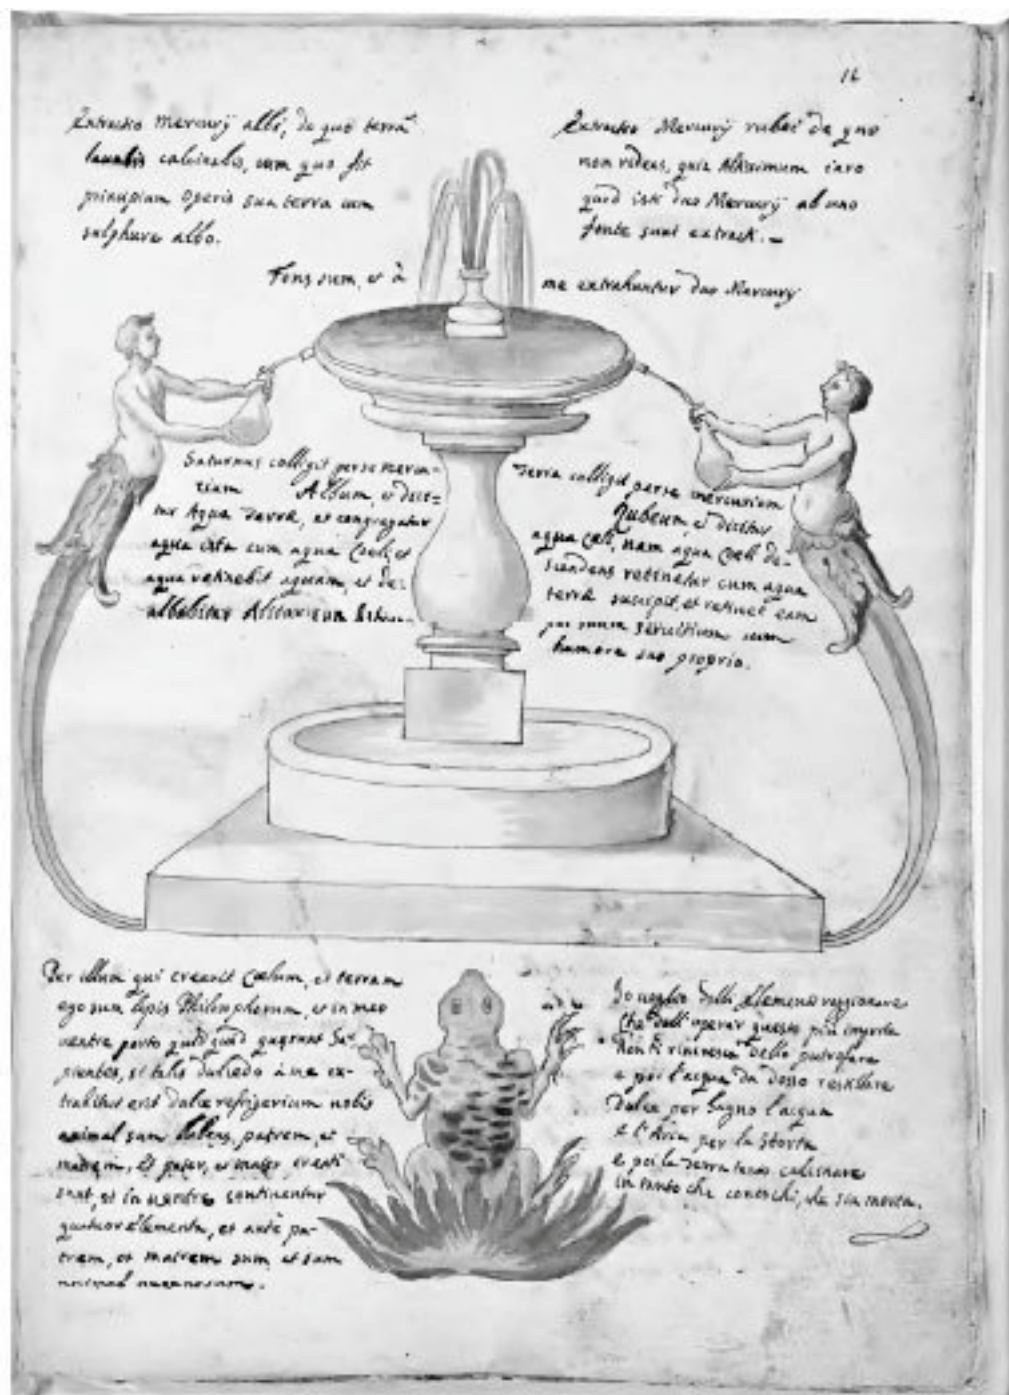 12
Extractio Mercurij albi, de quo terrã
calcinabis, cum quo fit
principium operis sua terra cum
sulphure albo.
Extractio Mercurij rubei de quo
non rideas, quia Altissimum iuro
quod isti duo Mercurij ab uno
fonte sunt extract.
Fons sum, et à
me extrahuntur duo Mercurij
Saturnus colligit per se mercu-
rium Album, et dici-
tur Aqua Terræ, et congregatur
aqua ista cum aqua Cœli, et
aqua retinebit aquam, et de-
albabitur
Terra colligit per se mercurium
Rubeum, et dicitur
aqua Cœli, nam aqua Cœli de-
scendens retinetur cum aqua
terræ suscipit, et retinet eam
suum servitium cum
humore suo proprio.
Per illum qui creavit Cœlum, et terram
ego sum lapis Philosophorum, et in meo
ventre porto quid quid quærunt Sa-
pientes, si talis dulcedo à me ex-
trahitur erit dulce refrigerium nobis
animal sum habens, patrem, et
matrem, et pater, et mater creati
sunt, et in ventre continentur
quatuor ellementa, et ante pa-
trem, et matrem sum, et sum
animal venenosum.
Io voglio delli Elementi raggionare
Che dell'operar questo più importa
Non ti rincresca bello putrefare
e poi l'acqua da dosso restillare
Dalce per bagno l'acqua
e l'Aria per la storta
e poi la terra calcinare
in tanto che conoschi, che sia morta.